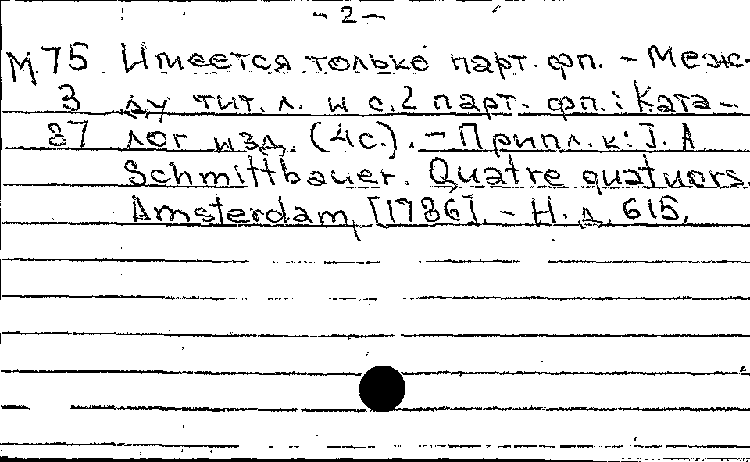 - 2 -
М.75 Имеется только парт. фп. - Меж-
3 ду тит. л. и с. 2 парт. фп.: Ката-
87 лог изд. (4с.). - Припл. к: J. A
Schmittbauer. Quatre quatuors.
Amsterdam, [1786]. - Н. д. 615.